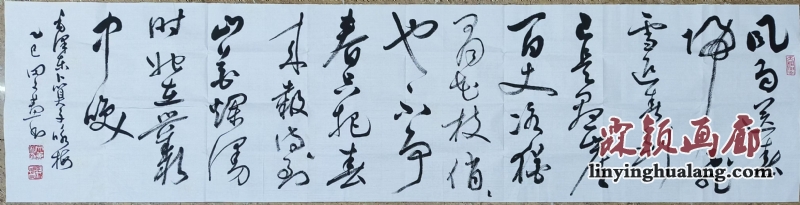 风雨送春
归飞
雪迎春到
已是悬崖
百丈冰犹
有花枝俏
也不争
春只把春
来报待到
山花烂漫
时她在丛
中笑
毛泽东卜算子咏梅
乙巳
颖画廊
linyinghualang.com